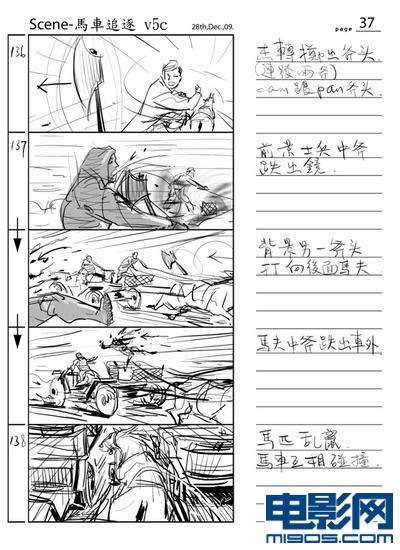 Scene-馬車追逐 v5c
28th,Dec.,09.
page 37
136
杰轉擲出斧头.
(連發兩斧)
cam跟pan斧头.
137
前景士兵中斧
跌出鏡.
背景另一斧头
打向後面馬夫.
馬夫中斧跌出車外
138
馬匹乱竄.
馬車互相碰撞.
电影网
m1905.com